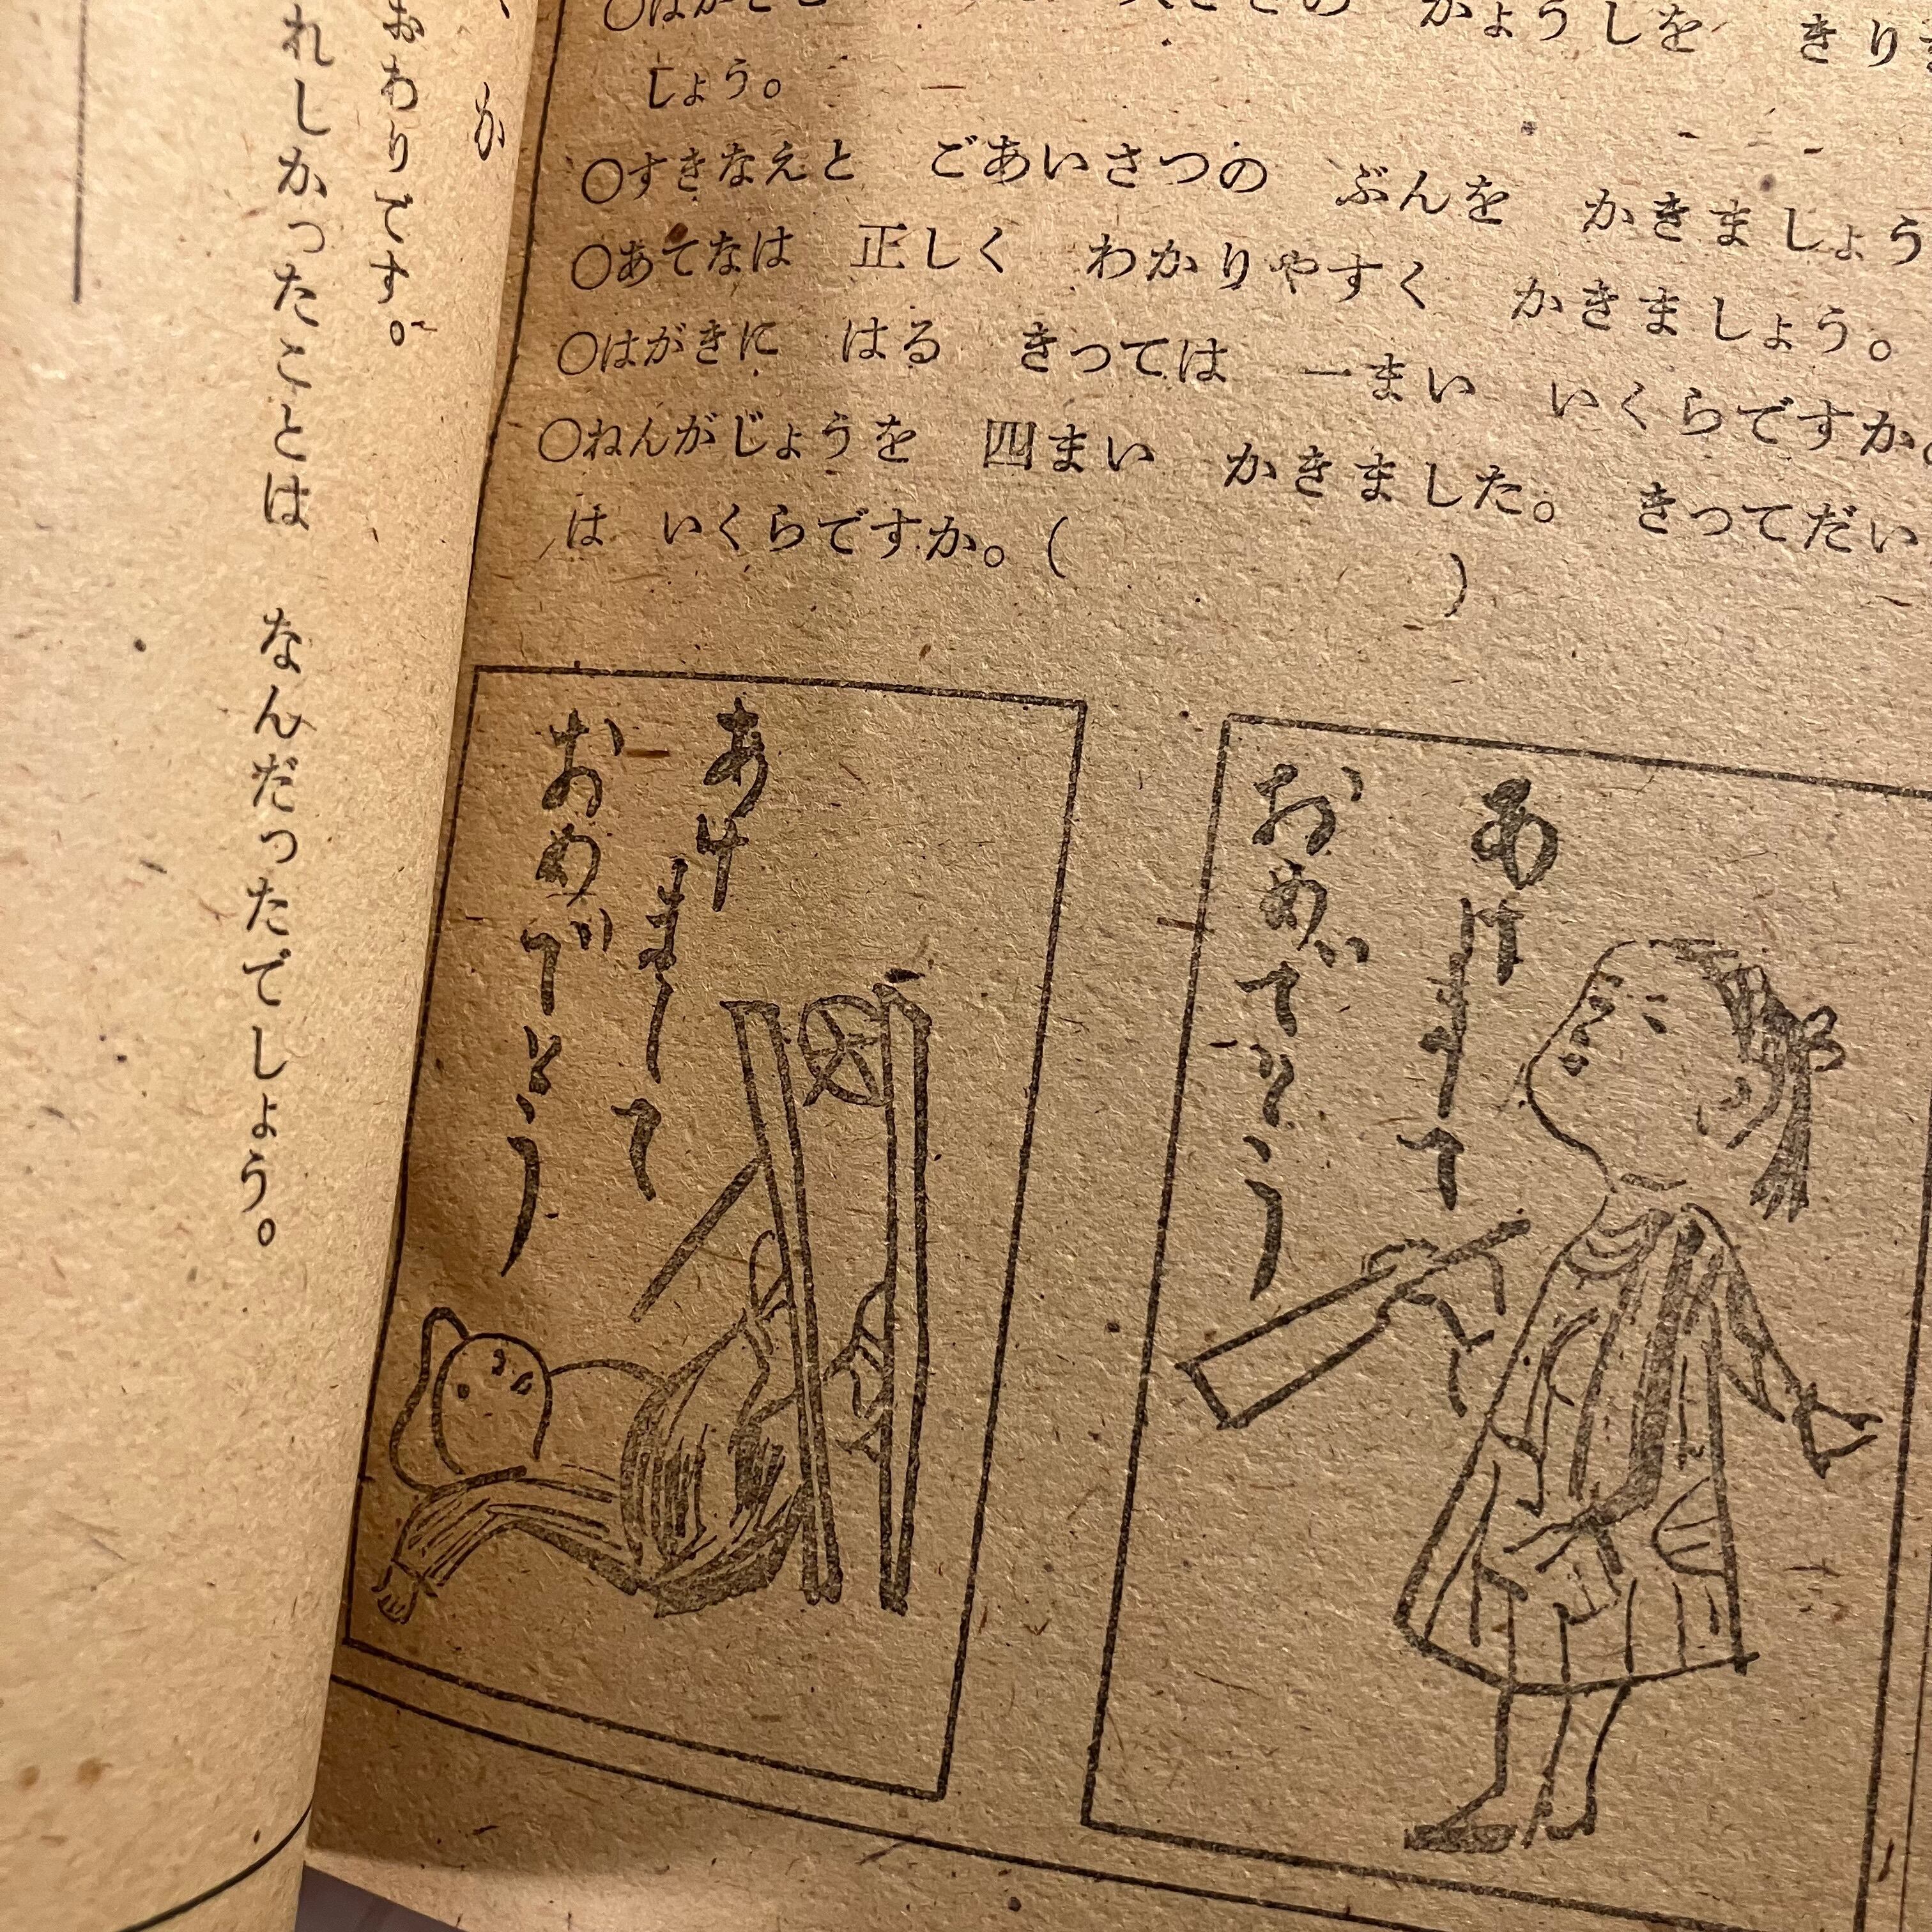 がようしを きり
しょう。
○すきなえと ごあいさつの ぶんを かきましょう
○あてなは 正しく わかりやすく かきましょう。
○はがきに はる きっては 一まい いくらですか。
○ねんがじょうを 四まい かきました。 きってだい
は いくらですか。( )
あけ
まして
おめでとう
あけ
まして
おめでとう
か
おわりです。
れしかったことは なんだったでしょう。